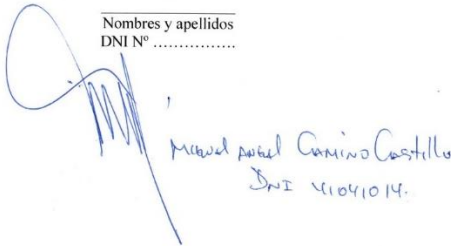 Nombres y apellidos
DNI Nº ................
Miguel Angel Camino Castillo
DNI 41041014.